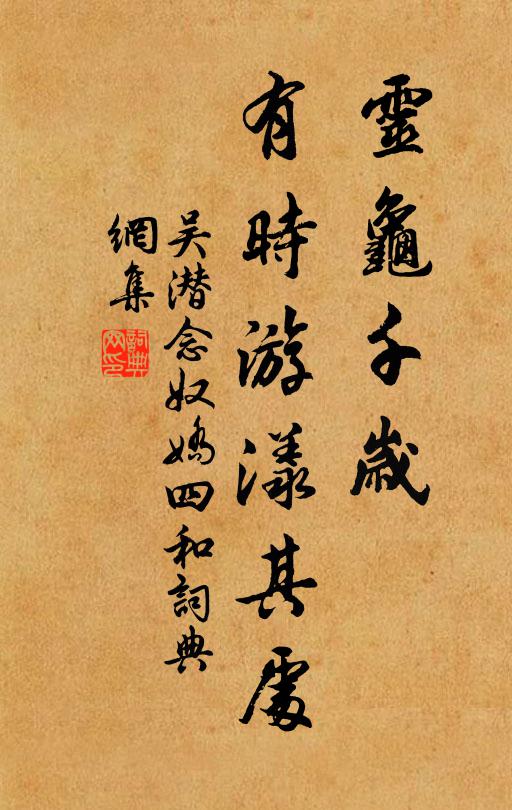 靈龜千歲
有時游漾其處
吴潜念奴嬌四和詞典
網集
詞典
网印